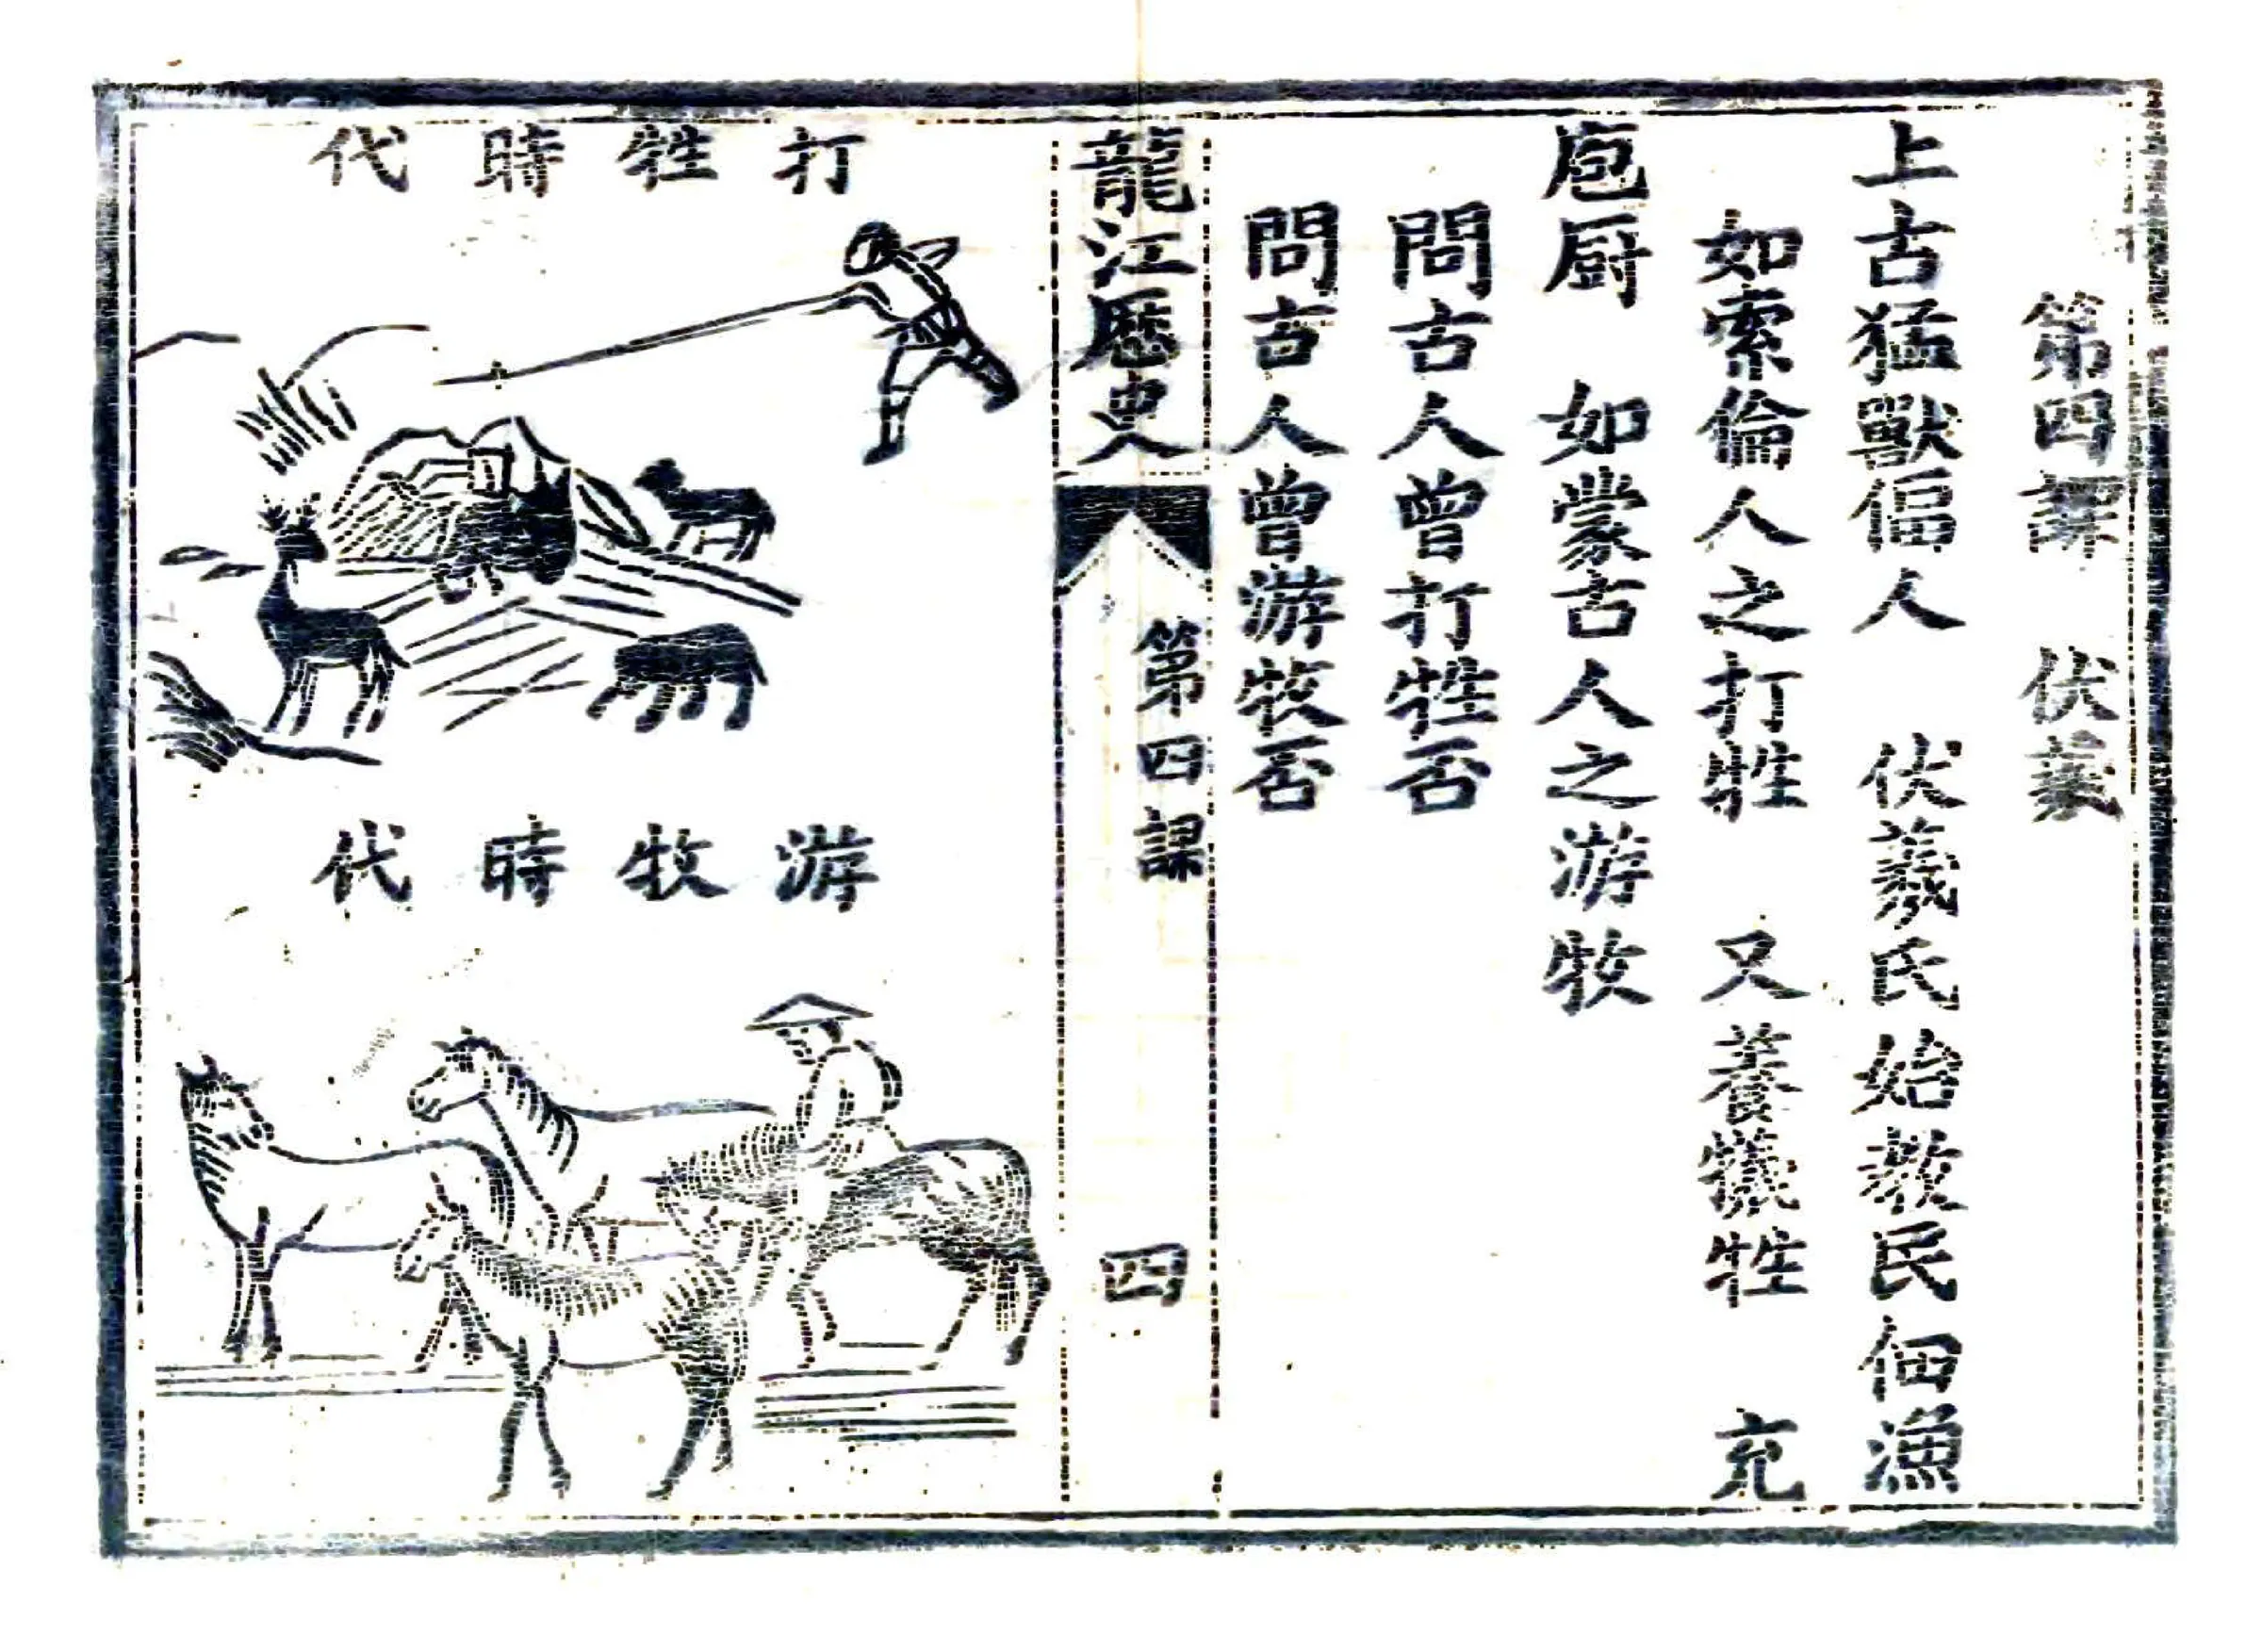 第四課　伏羲
上古猛獸偪人　伏羲氏始教民佃漁
如索倫人之打牲　又養犧牲　充
庖厨　如蒙古人之游牧
問古人曾打牲否
問古人曾游牧否
龍江歷史
第四課
四
打牲時代
游牧時代